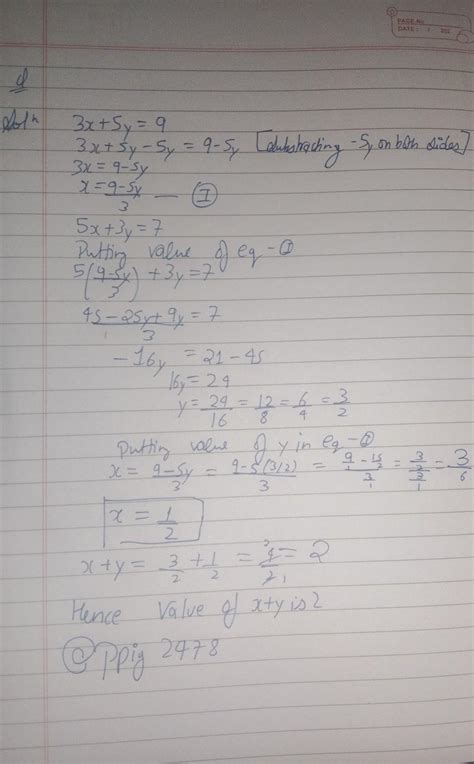 PAGE No.
DATE: / / 202
Q
Soln 3x+5y = 9
3x+5y-5y = 9-5y [Substracting -5y on both sides]
3x = 9-5y
x = 9-5y/3 — (I)
5x+3y = 7
Putting value of eq-(I)
5(9-5y/3) + 3y = 7
45-25y+9y/3 = 7
-16y = 21-45
16y = 24
y = 24/16 = 12/8 = 6/4 = 3/2
Putting value of y in eq-(I)
x = 9-5y/3 = 9-5(3/2)/3 = 9/1-15/2/3/1 = 3/2/3/1 = 3/6
x = 1/2
x+y = 3/2 + 1/2 = 4/2 = 2
Hence Value of x+y is 2
@ppig 2478